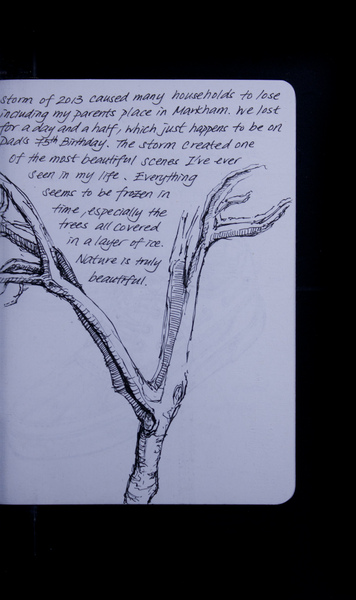 storm of 2013 caused many households to lose
including my parents place in Markham. We lost
for a day and a half, which just happens to be on
Dad's 75th Birthday. The storm created one
of the most beautiful scenes I've ever
seen in my life. Everything
seems to be frozen in
time, especially the
trees all covered
in a layer of ice.
Nature is truly
beautiful.